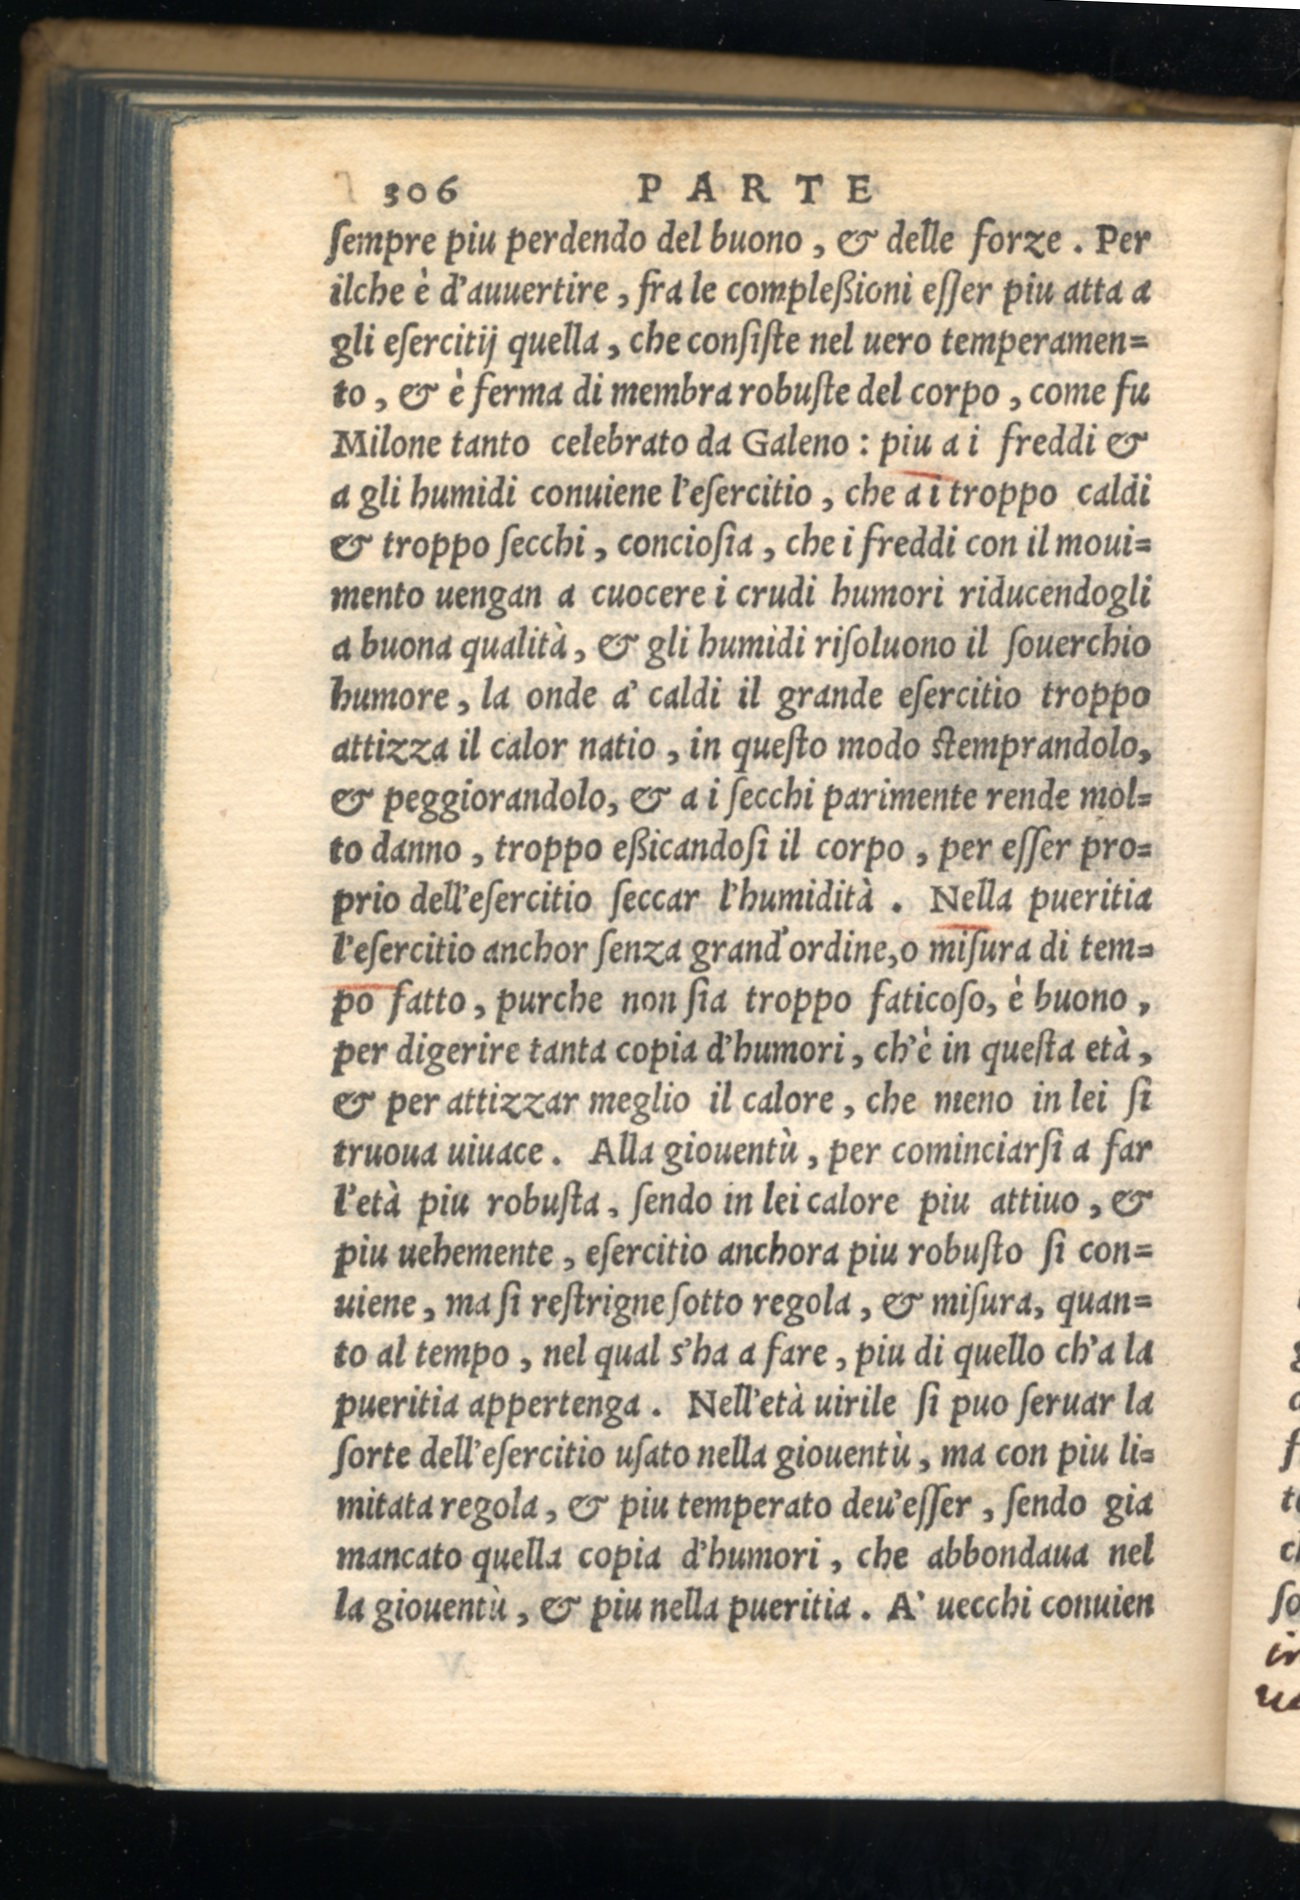 306 PARTE
ſempre piu perdendo del buono, & delle forze. Per
ilche è d'auuertire, fra le compleßioni eſſer piu atta a
gli eſercitij quella, che conſiſte nel uero temperamen=
to, & è ferma di membra robuſte del corpo, come fu
Milone tanto celebrato da Galeno: piu a i freddi &
a gli humidi conuiene l'eſercitio, che a i troppo caldi
& troppo ſecchi, concioſia, che i freddi con il moui=
mento uengan a cuocere i crudi humori riducendogli
a buona qualità, & gli humidi riſoluono il ſouerchio
humore, la onde a' caldi il grande eſercitio troppo
attizza il calor natio, in queſto modo ſtemprandolo,
& peggiorandolo, & a i ſecchi parimente rende mol=
to danno, troppo eßicandoſi il corpo, per eſſer pro=
prio dell'eſercitio ſeccar l'humidità. Nella pueritia
l'eſercitio anchor ſenza grand'ordine, o miſura di tem=
po fatto, purche non ſia troppo faticoſo, è buono,
per digerire tanta copia d'humori, ch'è in queſta età,
& per attizzar meglio il calore, che meno in lei ſi
truoua uiuace. Alla giouentù, per cominciarſi a far
l'età piu robuſta, ſendo in lei calore piu attiuo, &
piu uehemente, eſercitio anchora piu robuſto ſi con=
uiene, ma ſi reſtrigne ſotto regola, & miſura, quan=
to al tempo, nel qual s'ha a fare, piu di quello ch'a la
pueritia appertenga. Nell'età uirile ſi puo ſeruar la
ſorte dell'eſercitio uſato nella giouentù, ma con piu li=
mitata regola, & piu temperato deu'eſſer, ſendo gia
mancato quella copia d'humori, che abbondaua nel
la giouentù, & piu nella pueritia. A' uecchi conuien